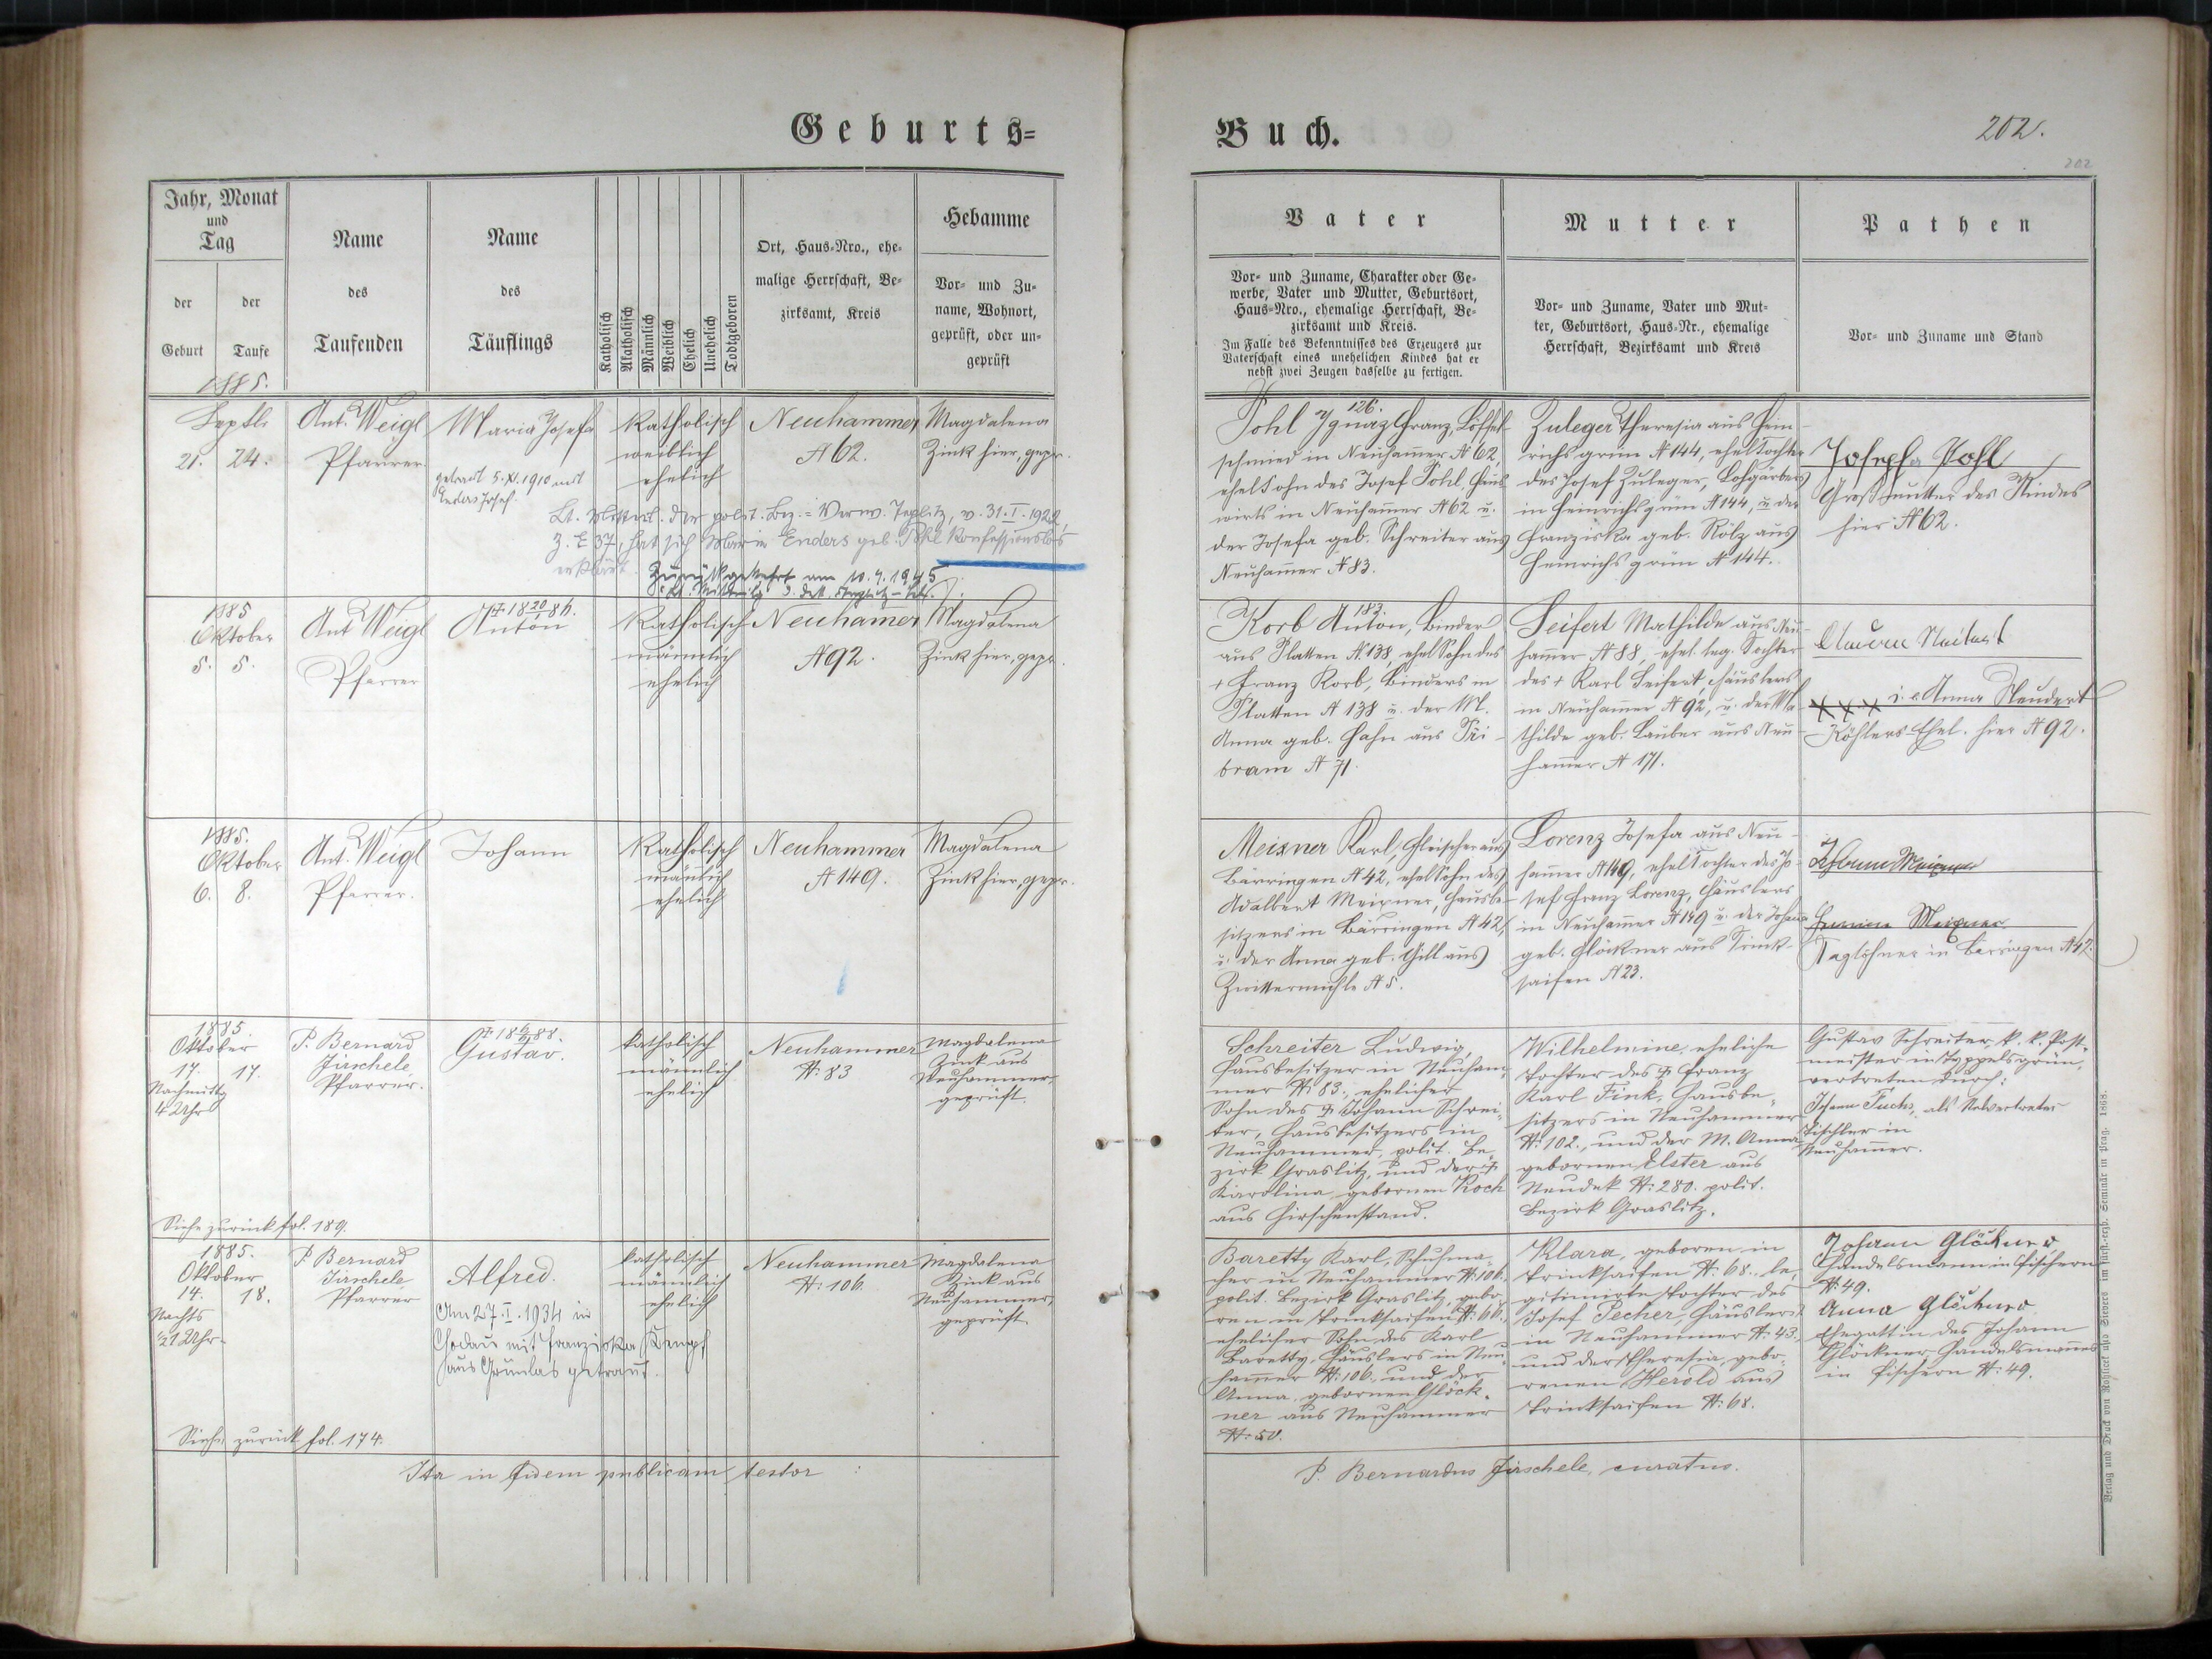 Geburts=
Buch.
202.
202
Jahr, Monat
und
Tag
der
Geburt
der
Taufe
Name
des
Taufenden
Name
des
Täuflings
Katholisch
Akatholisch
Männlich
Weiblich
Ehelich
Unehelich
Todtgeboren
Ort, Haus-Nro., ehe-
malige Herrschaft, Be-
zirksamt, Kreis
Hebamme
Vor- und Zu-
name, Wohnort,
geprüft, oder un-
geprüft
Vater
Vor- und Zuname, Charakter oder Ge-
werbe, Vater und Mutter, Geburtsort,
Haus-Nro., ehemalige Herrschaft, Be-
zirksamt und Kreis.
Im Falle des Bekenntnisses des Erzeugers zur
Vaterschaft eines unehelichen Kindes hat er
nebst zwei Zeugen dasselbe zu fertigen.
Mutter
Vor- und Zuname, Vater und Mut-
ter, Geburtsort, Haus-Nr., ehemalige
Herrschaft, Bezirksamt und Kreis
Pathen
Vor- und Zuname und Stand
1885.
Septb.
21. 24.
Ant. Weigl
Pfarrer.
Maria Josefa
getraut 5. XI. 1910 mit
Enders Josef.
Katholisch
weiblich
ehelich
Neuhammer
N 62.
Magdalena
Zink hier, gepr.
Lt. polit. Bez. = Verw. Teplitz, v. 31. I. 1922,
Z. E 37, hat sich Marie Enders geb. Pohl konfessionslos
erklärt. Zurückgekehrt am 10.4.1945
126.
Pohl Ignaz Franz, Löffel-
schmied in Neuhamer N 62,
ehel Sohn des Josef Pohl, Haus
wirts in Neuhamer N 62 u.
der Josefa geb. Schreiter aus
Neuhamer N 83.
Zuleger Theresia aus Hein-
richs grün N 144, ehel Tochter
des Josef Zuleger, Lohgärbers
in Heinrichsgrün N 144, u. der
Franziska geb. Rölz aus
Heinrichs grün N 144.
Josefa Pohl
Großmutter des Kindes
hier N 62.
1885
Oktober
5. 5.
Ant Weigl
Pfarrer
Anton
Katholisch
männlich
ehelich
Neuhamer
N 92.
Magdalena
Zink hier, gepr.
183.
Korb Anton, Binder
aus Platten N. 138, ehel Sohn des
+ Franz Korb, Binders in
Platten N 138 u. der M.
Anna geb. Hahn aus Pri-
bram N 71.
Seifert Mathilde aus Neu-
hamer N 88, ehel. leg. Tochter
des + Karl Seifert, Häuslers
in Neuhamer N 92, u. der Ma-
thilde geb. Lauber aus Neu-
hamer N 171.
xxx i. e. Anna Neudert
Köhlers Ehel. hier N 92.
1885.
Oktober
6. 8.
Ant. Weigl
Pfarrer.
Johann
Katholisch
mänlich
ehelich
Neuhammer
N 149.
Magdalena
Zink hier, gepr.
Meixner Karl, Fleischer aus
Bärringen N 42, ehel Sohn des
Adalbert Meixner, Hausbe-
sitzers in Bärringen N 42,
u. der Anna geb. Gill aus
Zwittermühle N 5.
Lorenz Josefa aus Neu-
hamer N 149, ehel Tochter des Jo-
sef Franz Lorenz, Häuslers
in Neuhamer N 149 u. der Johana
geb. Glöckner aus Trink-
saifen N 23.
Johann Meixner
Meixner
Taglöhner in Bärringen N 42.
1885.
Oktober
17. 17.
Nachmittg
4 Uhr
P. Bernard
Jirschele,
Pfarrer.
Gustav.
katholisch
männlich
ehelich
Neuhammer
N: 83
Magdalena
Zink aus
Neuhammer,
geprüft.
Schreiter Ludwig,
Hausbesitzer in Neuham-
mer N: 83, ehelicher
Sohn des + Johann Schrei-
ter, Hausbesitzers in
Neuhammer, polit. Be-
zirk Graslitz, und der +
Karolina, gebornen Koch
aus Hirschenstand.
Wilhelmine, eheliche
Tochter des + Franz
Karl Fink, Hausbe-
sitzers in Neuhammer
N: 102, und der M. Anna,
gebornen Elster aus
Neudek N: 280. polit.
Bezirk Graslitz.
Gustav Schreiter, k. k. Post-
meister in Tüppelsgrün,
vertreten durch:
Johann Fuchs, als Stelvertreter
Tischler in
Neuhamer.
Siehe zurück fol. 189.
1885.
Oktober
14. 18.
Nachts
1/2 1 Uhr
P. Bernard
Jirschele
Pfarrer
Alfred.
Am 27. I. 1934 in
Chodau mit Franziska Kempf
aus Grünlas getraut.
katholisch
männlich
ehelich
Neuhammer
N: 106.
Magdalena
Zink aus
Neuhammer,
geprüft.
Baretty Karl, Schuhma-
cher in Neuhammer N: 106,
polit. Bezirk Graslitz, gebo-
ren in Trinksaifen N: 66,
ehelicher Sohn des Karl
Baretty, Häuslers in Neu-
hamer N: 106, und der
Anna, gebornen Glöck-
ner aus Neuhammer
N: 50.
Klara, geboren in
Trinksaifen N: 68, le-
gitimirte Tochter des
Josef Pecher, Häuslers
in Neuhammer N: 43,
und der Theresia, gebo-
renen Herold aus
Trinksaifen N: 68.
Johann Glöckner
Handelsmann in Fischern
N: 49.
Anna Glöckner
Ehegattin des Johann
Glöckner, Handelsmannes
in Fischern N: 49.
Siehe zurück fol. 174.
Ita in fidem publicam testor :
P. Bernardus Jirschele, curatus.
Verlag und Druck von Rohlicek und Sievers im fürst.-erzb. Seminar in Prag. 1868.